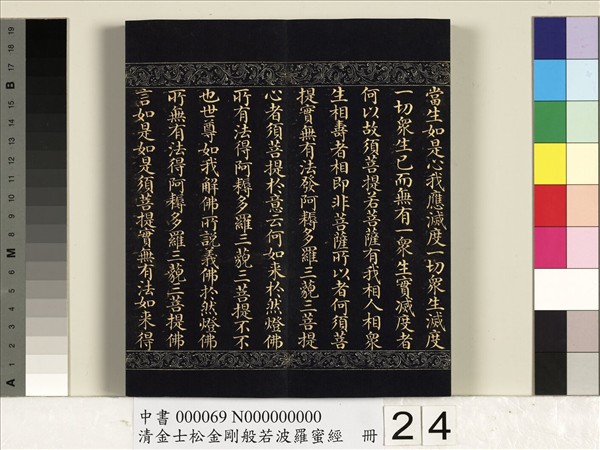 當生如是心我應滅度一切衆生滅度
一切衆生已而無有一衆生實滅度者
何以故須菩提若菩薩有我相人相衆
生相壽者相即非菩薩所以者何須菩
提實無有法發阿耨多羅三藐三菩提
心者須菩提於意云何如来於然燈佛
所有法得阿耨多羅三藐三菩提不不
也世尊如我解佛所說義佛於然燈佛
所無有法得阿耨多羅三藐三菩提佛
言如是如是須菩提實無有法如来得
中書 000069 N000000000
清金士松金剛般若波羅蜜經 冊 24
A 1 2 3 4 5 6 M 8 9 10 11 12 13 14 15 B 17 18 19